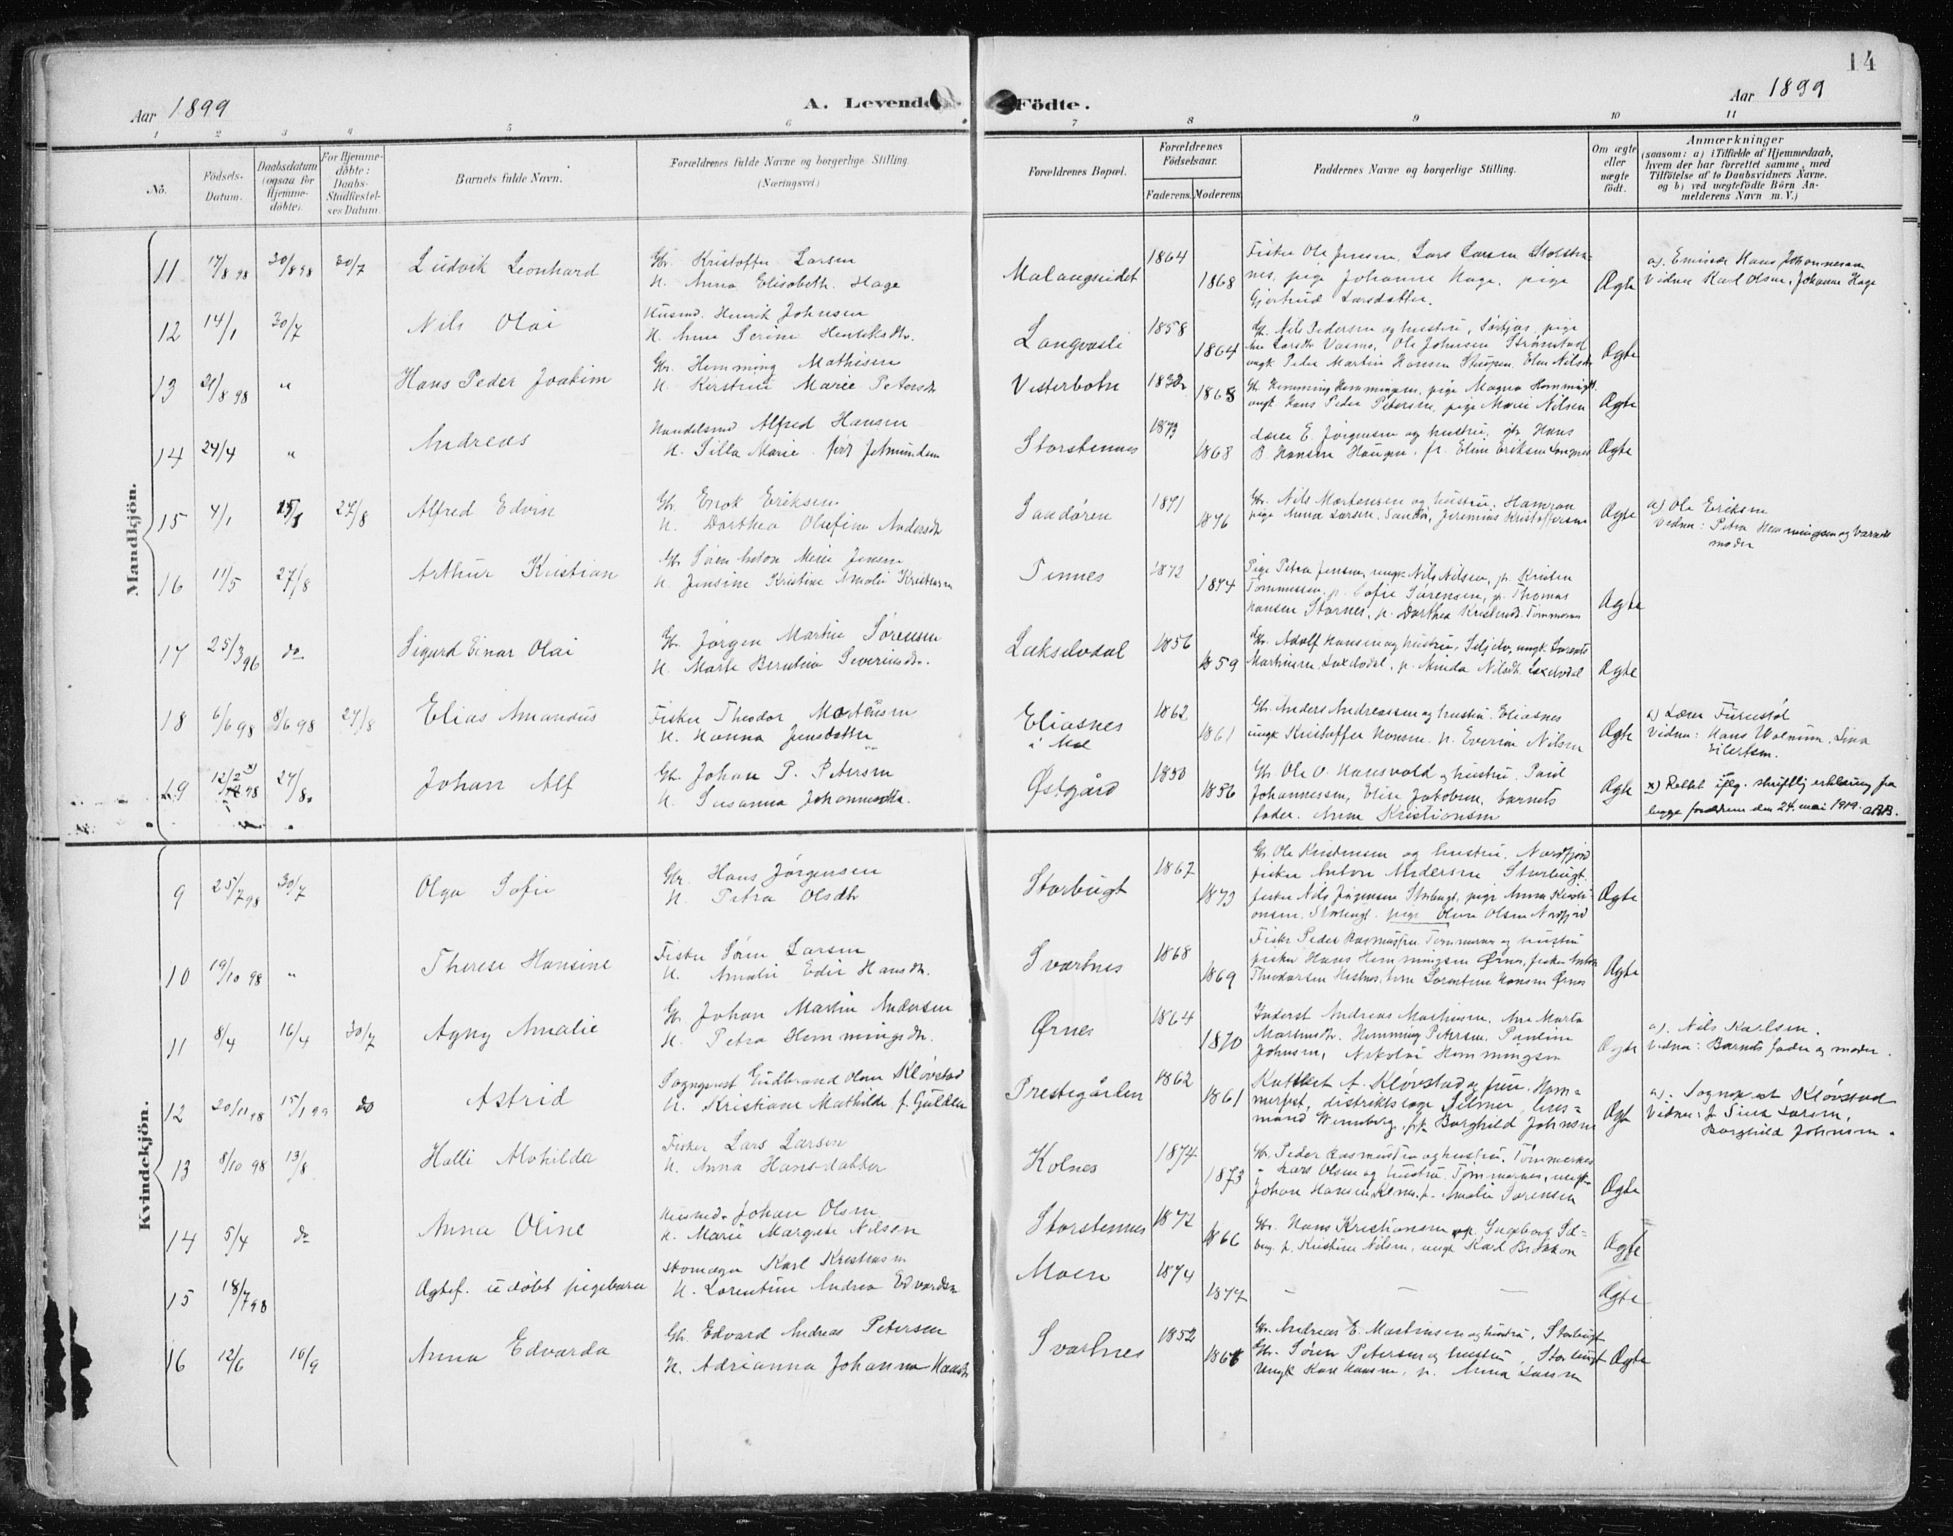 14
Aar 1899
A. Levende Födte.
Aar 1899
1 2 3 4 5 6 7 8 9 10 11
No.
Födsels-Datum.
Daabsdatum (ogsaa for Hjemme-döbte).
For Hjemme-döbte: Daabs-Stadfæstel-ses Datum.
Barnets fulde Navn.
Forældrenes fulde Navne og borgerlige Stilling.
(Næringsvei)
Forældrenes Bopæl.
Forældrenes Födselsaar.
Faderens. Moderens.
Faddernes Navne og borgerlige Stilling.
Om ægte eller uægte födt.
Anmærkninger
(saasom: a) i Tilfælde af Hjemmedaab,
hvem der har forrettet samme, med
Tilföielse af to Daabsvidners Navne.
og b) ved uægtefödte Börn An-
melderens Navn m. V.)
Mandkjön.
11 17/8 98 30/8 98 30/7 Ludvik Leonhard
Gbr. Kristoffer Larsen
H. Anna Elisabeth Hage
Malangseidet 1864 1868
Fisker Ole Jensen, Lars Larsen
pige Johanne Hage, pige
Gjertrud Larsdatter.
Ægte
a). Emissær Hans Johannesen
Vidner Karl Olsen, Johanne Hage
12 14/1 30/7 Nils Olai
Husmd. Henrik Johnsen
H. Anna Serine Henriksdtr.
Langvasli 1858 1864
Gb. Nils Pedersen og hustru, pige
Ole Johnsen Strømstad
ungk Peder Martin Hansen Elen Nilsdtr
Ægte
13 21/8 98 " Hans Peder Joakim
Gbr. Hemming Mathisen
H. Kerstine Marie Petersdtr
Vesterbotn 1868
Gb. Hemming Hemmingsen, pige Magna Hemmingsd.
ungk Hans Peder Petersen, pige Marie Nilsen
Ægte
14 24/4 " Andreas
Handelsmd Alfred Hansen
H. Silla Marie
Storstennes 1873 1868
Lærer E. Jørgensen og hustru, gbr Hans
B. Hansen Haugen, fr. Eline Eriksen
Ægte
15 4/1 27/8 Alfred Edvin
Gbr. Enok Eriksen
H. Dorthea Olefine Andersdtr
Sandøren 1871 1876
Gbr. Nils Mortensen og hustru,
pige Anna Larsen, Sandør, Jeremias Kristoffersen
Ægte
a) Ole Eriksen
Vidner: Petra Hemmingsen og barnets
moder
16 11/5 27/8 Arthur Kristian
Gb. Søren Anton Meier Jensen
H. Jensine Kristine Amalie Kristensen
Tennes 1872 1874
Pige Petra Jensen, ungk Nils Nilsen, p. Kristen
Tømmesen, p. Sofie Sørensen, p. Thomas
Hansen Stornes, p. Dorthea Kristensd.
Ægte
17 25/3 96 do Sigurd Einar Olai
Gb. Jørgen Martin Sørensen
H. Marte Berntine Severinsdtr.
Lakselvdal 1856 1859
Gbr. Adolf Hansen og hustru, Seljelv, ungk Lorents
Martinsen Laxelvdal, p. Minda Nilsdtr. Laxelvdal
Ægte
18 6/6 98 8/6 98 27/8 Elias Amandus
Fisker Theodor Mortensen
H. Hanna Jensdatter
Eliasnes
i Mal
1862 1861
Gb. Anders Andreassen og hustru, Eliasnes
ungk Kristoffer Hansen, p. Everine Nilsen
Ægte
a) Lærer Furustøl
Vidner: Hans Wolnum, Lina
Eilertsen.
19 12/2 98 x) 27/8 Johan Alf
Gb. Johan P. Petersen
H. Susanna Johannesdtr.
Østgård 1850 1856
Gb. Ole O. Hansvold og hustru, Paul
Johannessen, Elise Jakobsen, barnets
fader. Anne Kristiansen
Ægte
x) Rettet iflg. skriftlig erklæring fra
begge forældrene den 24. mai 1919.
Kvindekjön.
9 25/7 98 30/7 Olga Sofie
Gbr. Hans Jørgensen
H. Petra Olsdtr
Storbugt 1867 1873
Gb. Ole Kristensen og hustru, Nordfjord
fisker Anton Andersen Storbugt,
fisker Nils Jørgensen Storbugt, pige Anna Kristi-
ansen, Storbugt, pige Oline Olsen Nordfjord
Ægte
10 19/10 98 " Therese Hansine
Fisker Søren Larsen
H. Amalie Edie Hansdtr.
Svartnes 1868 1869
Fisker Peder Rasmussen Tømmernes og hustru
fisker Hans Hemmingsen Ørnes, fisker Anton
Theodorsen Lorentine Hansen Ørnes
Ægte
11 8/4 16/4 30/7 Agny Amalie
Gb. Johan Martin Andersen
H. Petra Hemmingsdtr.
Ørnes 1864 1870
Inderst Andreas Mathisen, Ane Marta
Hemming Petersen, Pauline
Johnsen, Nikolai Hemmingsen
Ægte
a). Nils Karlsen.
Vidner: Barnets fader og moder.
12 20/11 98 15/1 99 do Astrid
Sogneprest Gudbrand Olsen Kløvstad
H. Kristiane Mathilde f. Gulden
Prestegården 1862 1861
A. Kløvstad og frue, Ham-
merfest, distriktslæge hus-
mand Wennberg, frk Borghild Johnsen
Ægte
a). Sogneprest Kløvstad
Vidner: J. Larsen,
Borghild Johnsen.
13 8/10 98 13/8 Halli Alvhilda
Fisker Lars Larsen
H. Anna Hansdatter
Kolnes 1874 1873
Gb. Peder Rasmussen og hustru, Tømmernes
Lars Olsen og hustru Tømmernes, ungk
Johan Hansen, p. Amalie Sørensen
Ægte
14 5/4 do Anna Oline
Husmd. Johan Olsen
H. Marie Margrete Nilsen
Storstennes 1872 1866
Gbr. Hans Kristiansen Ingeborg
p. Kristine Nilsen, ungk Karl
Ægte
15 18/7 98 Ægtef. udøbt pigebarn
Skomager Karl Kristensen
H. Lorentine Andrea Edvardsen
Moen 1874 1877
— — —
Ægte
16 12/6 10/9 Anna Edvarda
Gb. Edvard Andreas Petersen
H. Adrianna Johanna Hansdtr
Svartnes 1852
Gbr. Andreas E. Martinsen og hustru, Storbugt
Gb. Søren Petersen og hustru, Storbugt
Ungk Karl Hansen, p. Anna Larsen
Ægte